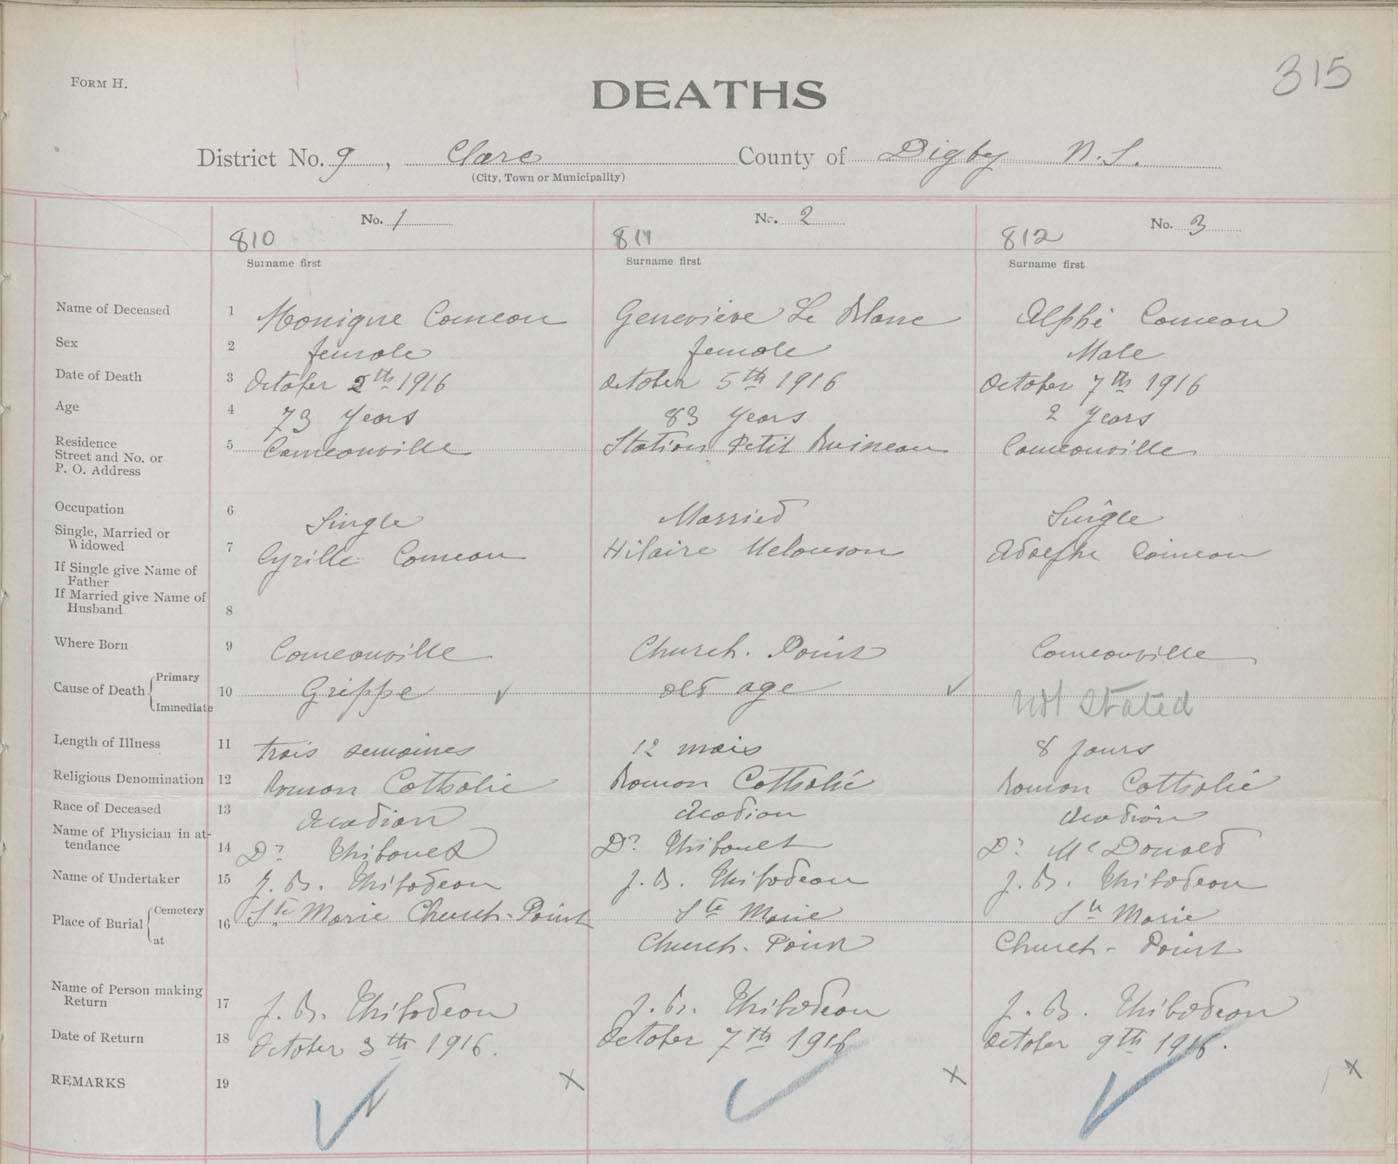 315
FORM H.
DEATHS
District No. 9, Clare County of Digby N.S.
(City, Town or Municipality)
No. 1 No. 2 No. 3
810 811 812
Surname first Surname first Surname first
Name of Deceased 1 Monique Comeau Genevieve Le Blanc Alphé Comeau
Sex 2 female female Male
Date of Death 3 October 2th 1916 October 5th 1916 October 7th 1916
Age 4 73 years 83 years 2 years
Residence
Street and No. or 5 Comeauville Station Petit Ruisseau Comeauville
P. O. Address
Occupation 6 Single Married Single
Single, Married or
Widowed 7 Cyrille Comeau Hilaire Melanson Adolphe Comeau
If Single give Name of
Father
If Married give Name of
Husband 8
Where Born 9 Comeauville Church-Point Comeauville
Cause of Death Primary
Immediate 10 Grippe old age Not Stated
Length of Illness 11 trois semaines 12 mois 8 jours
Religious Denomination 12 Roman Catholic Roman Catholic Roman Catholic
Race of Deceased 13 Acadian Acadian Acadian
Name of Physician in at-
tendance 14 Dr Thibault Dr Thibault Dr McDonald
Name of Undertaker 15 J. B. Thibodeau J. B. Thibodeau J. B. Thibodeau
Place of Burial Cemetery 16 Ste Marie Church-Point Ste Marie Ste Marie
at Church-Point Church-Point
Name of Person making
Return 17 J. B. Thibodeau J. B. Thibodeau J. B. Thibodeau
Date of Return 18 October 3th 1916. October 7th 1916 October 9th 1916.
REMARKS 19 x x x